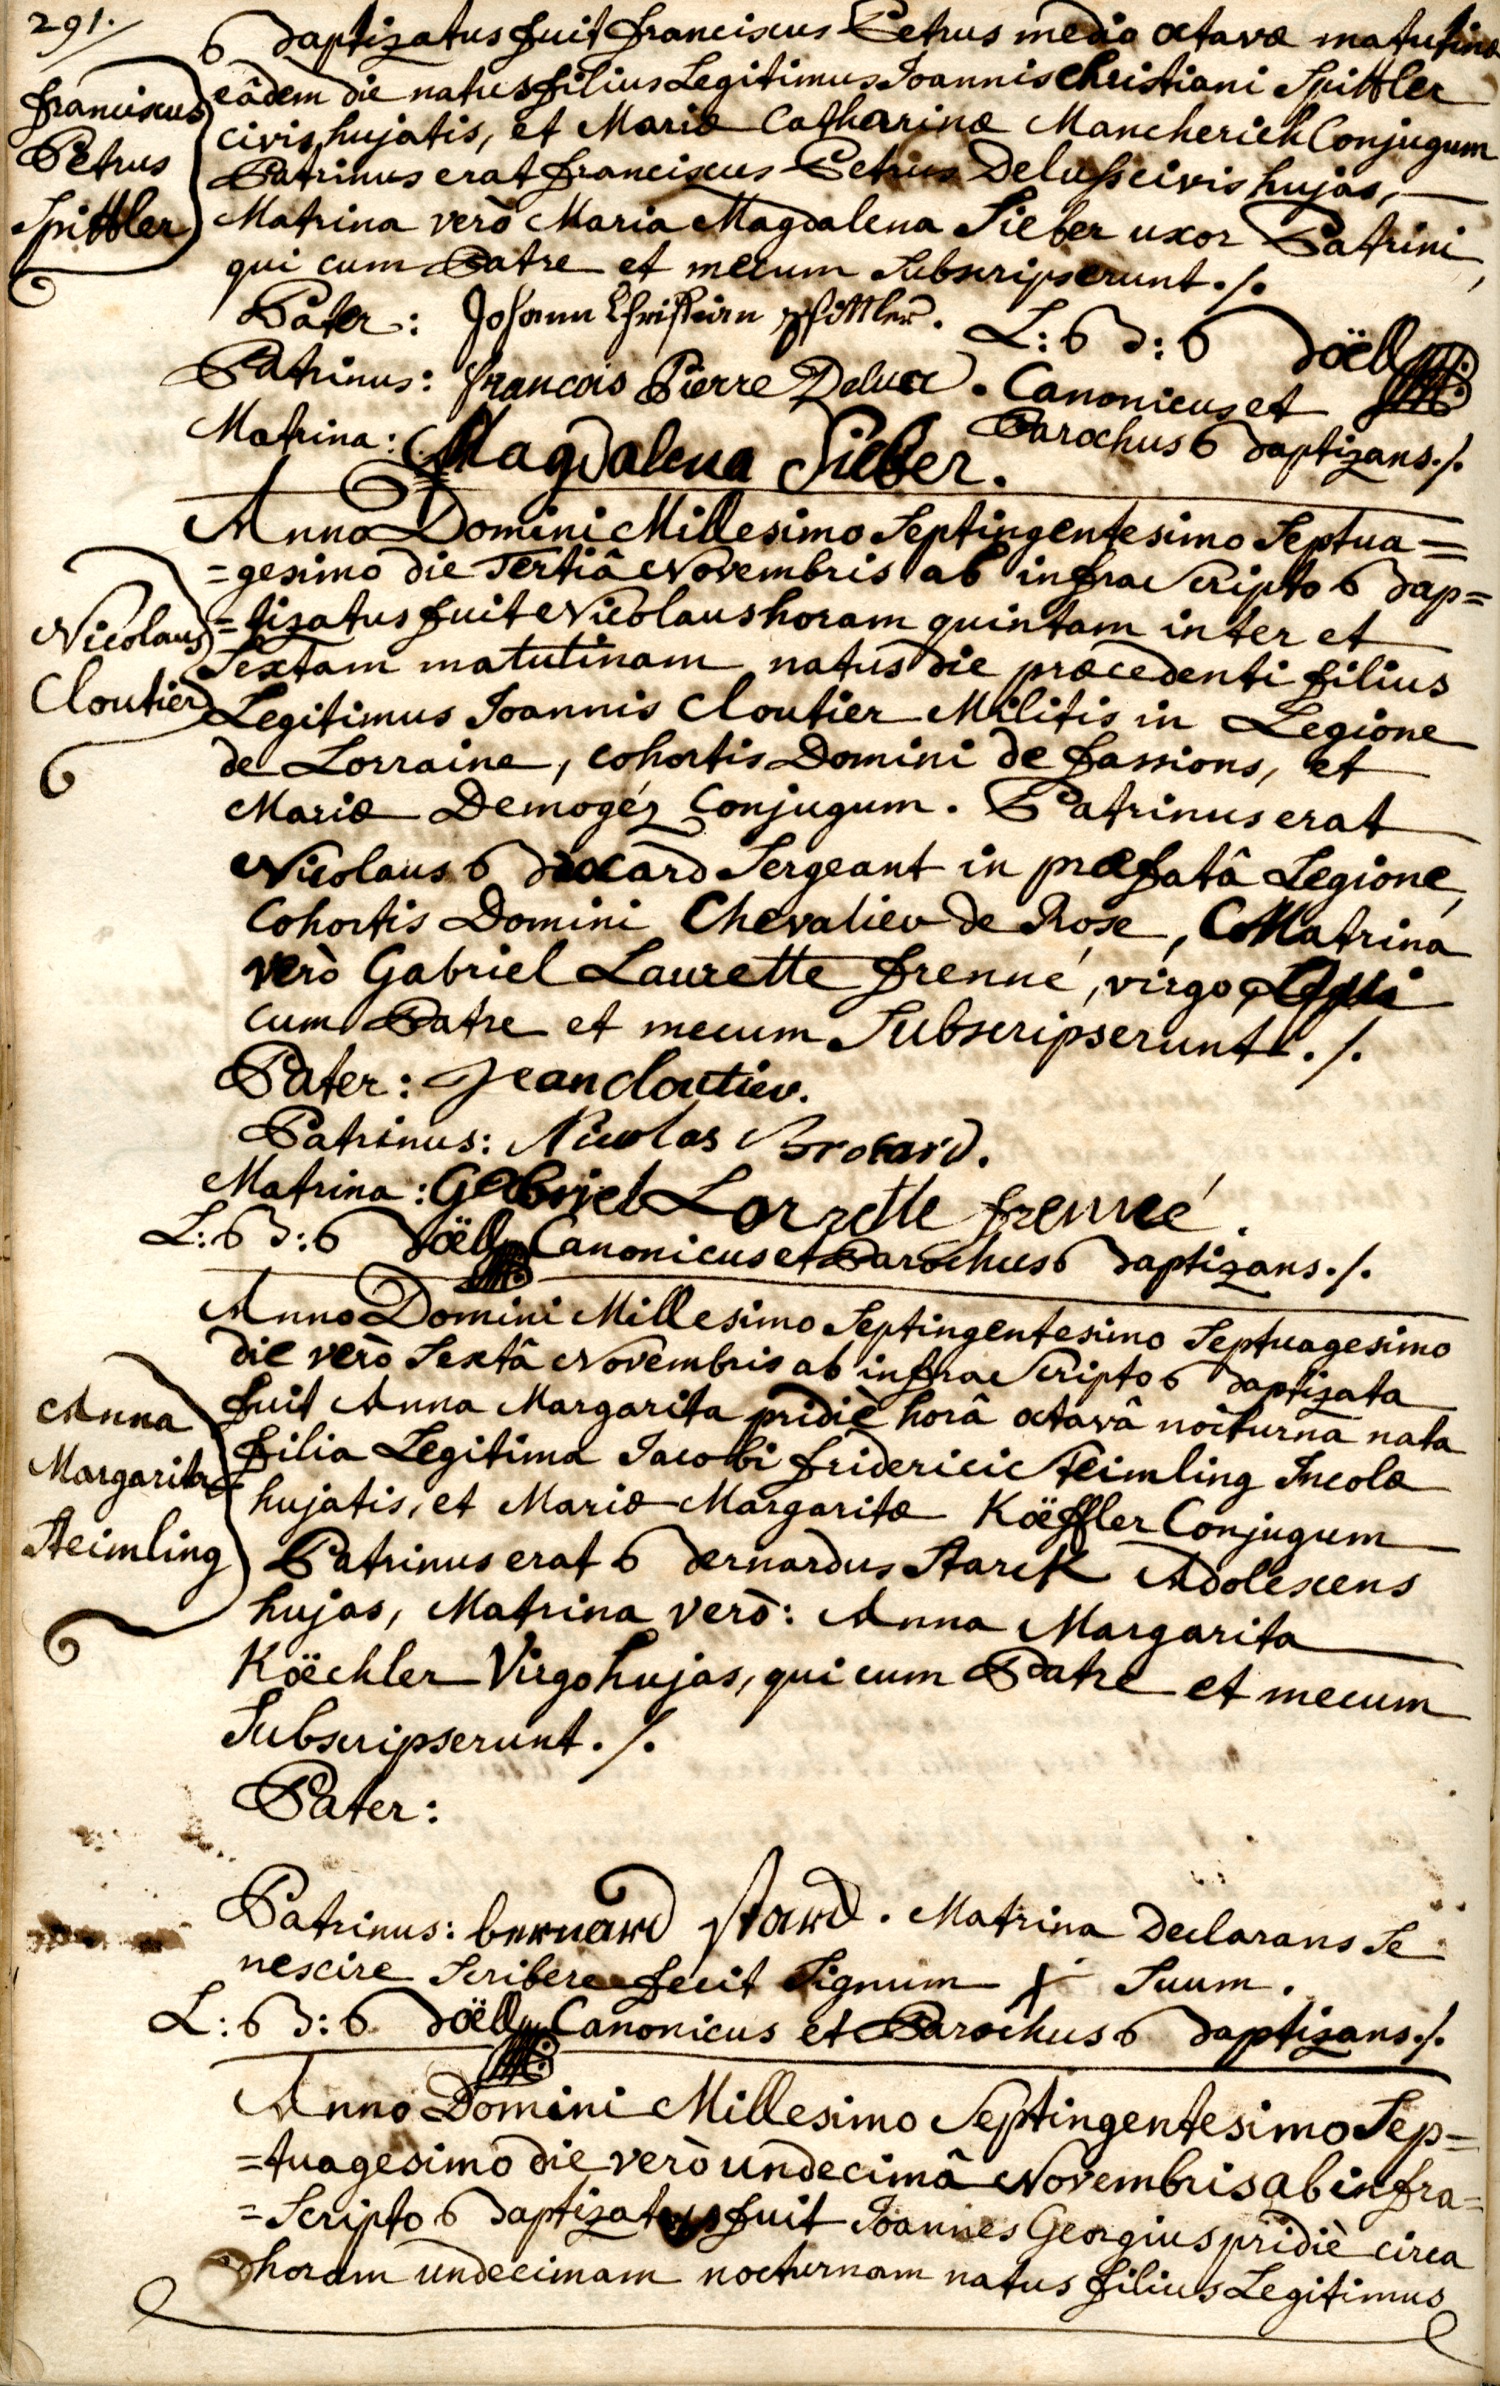 291.
Baptizatus fuit Franciscus Petrus mediâ octavâ matutinâ
eâdem die natus filius Legitimus Joannis Christiani Spittler
civis hujatis, et Mariæ Catharinæ Mancherich Conjugum
Patrinus erat Franciscus Petrus Deluss civis hujas,
Matrina verò Maria Magdalena Sieber uxor Patrini,
qui cum Patre et mecum Subscripserunt ./.
Franciscus
Petrus
Spittler
Pater: Johann Christian Spittler.
Patrinus: francois Pierre Deluce.
Matrina: Magdalena Sieber.
L: B: Boëll
Canonicus et
Parochus Baptizans./.
Anno Domini Millesimo Septingentesimo Septua=
=gesimo die Tertiâ Novembris ab infra Scripto Bap=
=tizatus fuit Nicolaus horam quintam inter et
Sextam matutinam natus die præcedenti filius
Legitimus Joannis Cloutier Militis in Legione
de Lorraine, cohortis Domini de fassions, et
Mariæ Demogéz Conjugum. Patrinus erat
Nicolaus Brocard Sergeant in præfatâ Legione,
Cohortis Domini Chevalier de Rose, Matrina
verò Gabriel Laurette frenné, virgo, qui
cum Patre et mecum Subscripserunt ./.
Nicolaus
Cloutier
Pater: Jean cloutier.
Patrinus: Nicolas Brocard.
Matrina: Gabriel Lorrette frenné.
L: B: Boëll Canonicus et Parochus Baptizans./.
Anno Domini Millesimo Septingentesimo Septuagesimo
die verò Sextâ Novembris ab infra Scripto Baptizata
fuit Anna Margarita pridiè horâ octavâ nocturnâ nata
filia Legitima Jacobi friderici Steimling Incolæ
hujatis, et Mariæ Margaritæ Köëffler Conjugum
Patrinus erat Bernardus Starck Adolescens
hujas, Matrina verò: Anna Margarita
Köëchler Virgo hujas, qui cum Patre et mecum
Subscripserunt ./.
Anna
Margarita
Steimling
Pater:
Patrinus: bernard starck. Matrina Declarans Se
nescire Scribere fecit Signum + Suum.
L: B: Boëll Canonicus et Parochus Baptizans./.
Anno Domini Millesimo Septingentesimo Sep=
=tuagesimo die verò undecimâ Novembris ab infra=
=Scripto Baptizatus fuit Joannes Georgius pridiè circa
horam undecimam nocturnam natus filius Legitimus